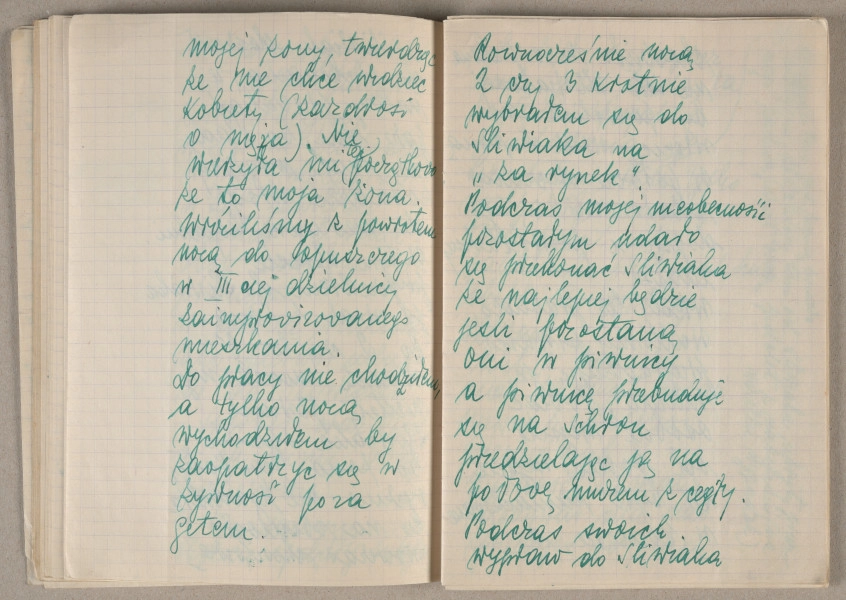 mojej żony, twierdząc
że nie chce widzieć
kobiety (zazdrość
o męża). Nie
wierzyła mi też początkowo
że to moja żona.
Wróciliśmy z powrotem
nocą do opuszczego
w III ciej dzielnicy
zaimprowizowanego
mieszkania.
Do pracy nie chodziłem,
a tylko nocą
wychodziłem by
zaopatrzyć się w
żywność poza
getem.
Rownocześnie nocą
2 czy 3 krotnie
wybrałem się do
Śliwiaka na
„za rynek".
Podczas mojej nieobecności
pozostałym udało
się przekonać Śliwiaka
że najlepiej będzie
jeśli pozostaną
oni w piwnicy
a piwnicę przebuduje
się na schron
przedzielając ją na
połowę murem z cegły.
Podczas swoich
wypraw do Śliwiaka